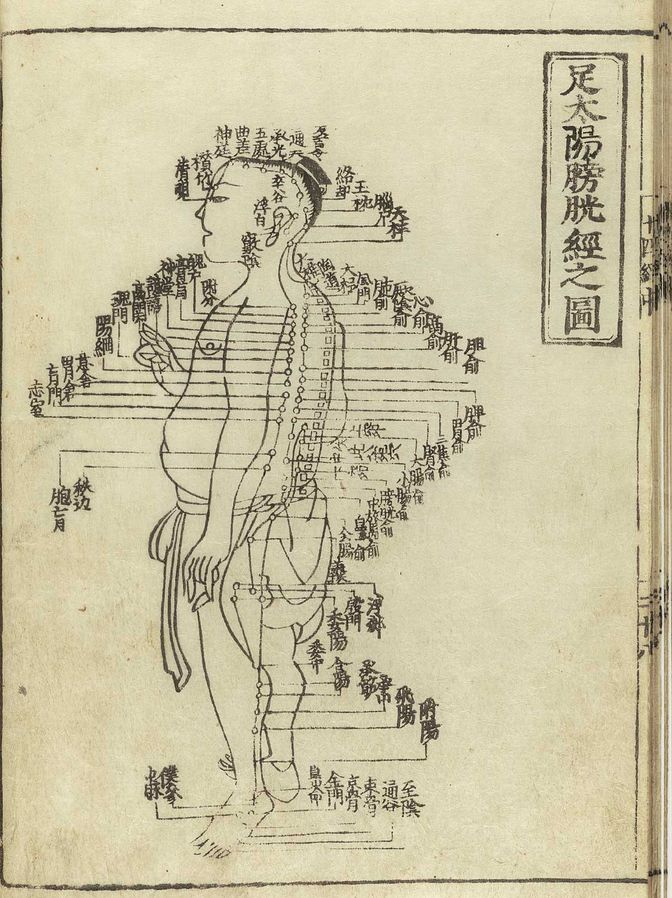 足太陽膀胱經之圖
天柱
玉枕
絡却
通天
承光
五處
曲差
神廷
攅竹
睛明
浮白
竅陰
大杼
風門
肺俞
心俞
膈俞
肝俞
胆俞
脾俞
胃俞
三焦俞
腎俞
大腸俞
小腸俞
膀胱俞
附分
魄戶
膏肓
神堂
譩譆
膈関
魂門
陽綱
意舎
胃倉
肓門
志室
胞肓
秩边
上
次
中
下
殷門
浮郄
委陽
委中
合陽
承筋
承山
飛陽
附陽
至陰
通谷
束骨
京骨
金門
崑崙
僕參
申脉